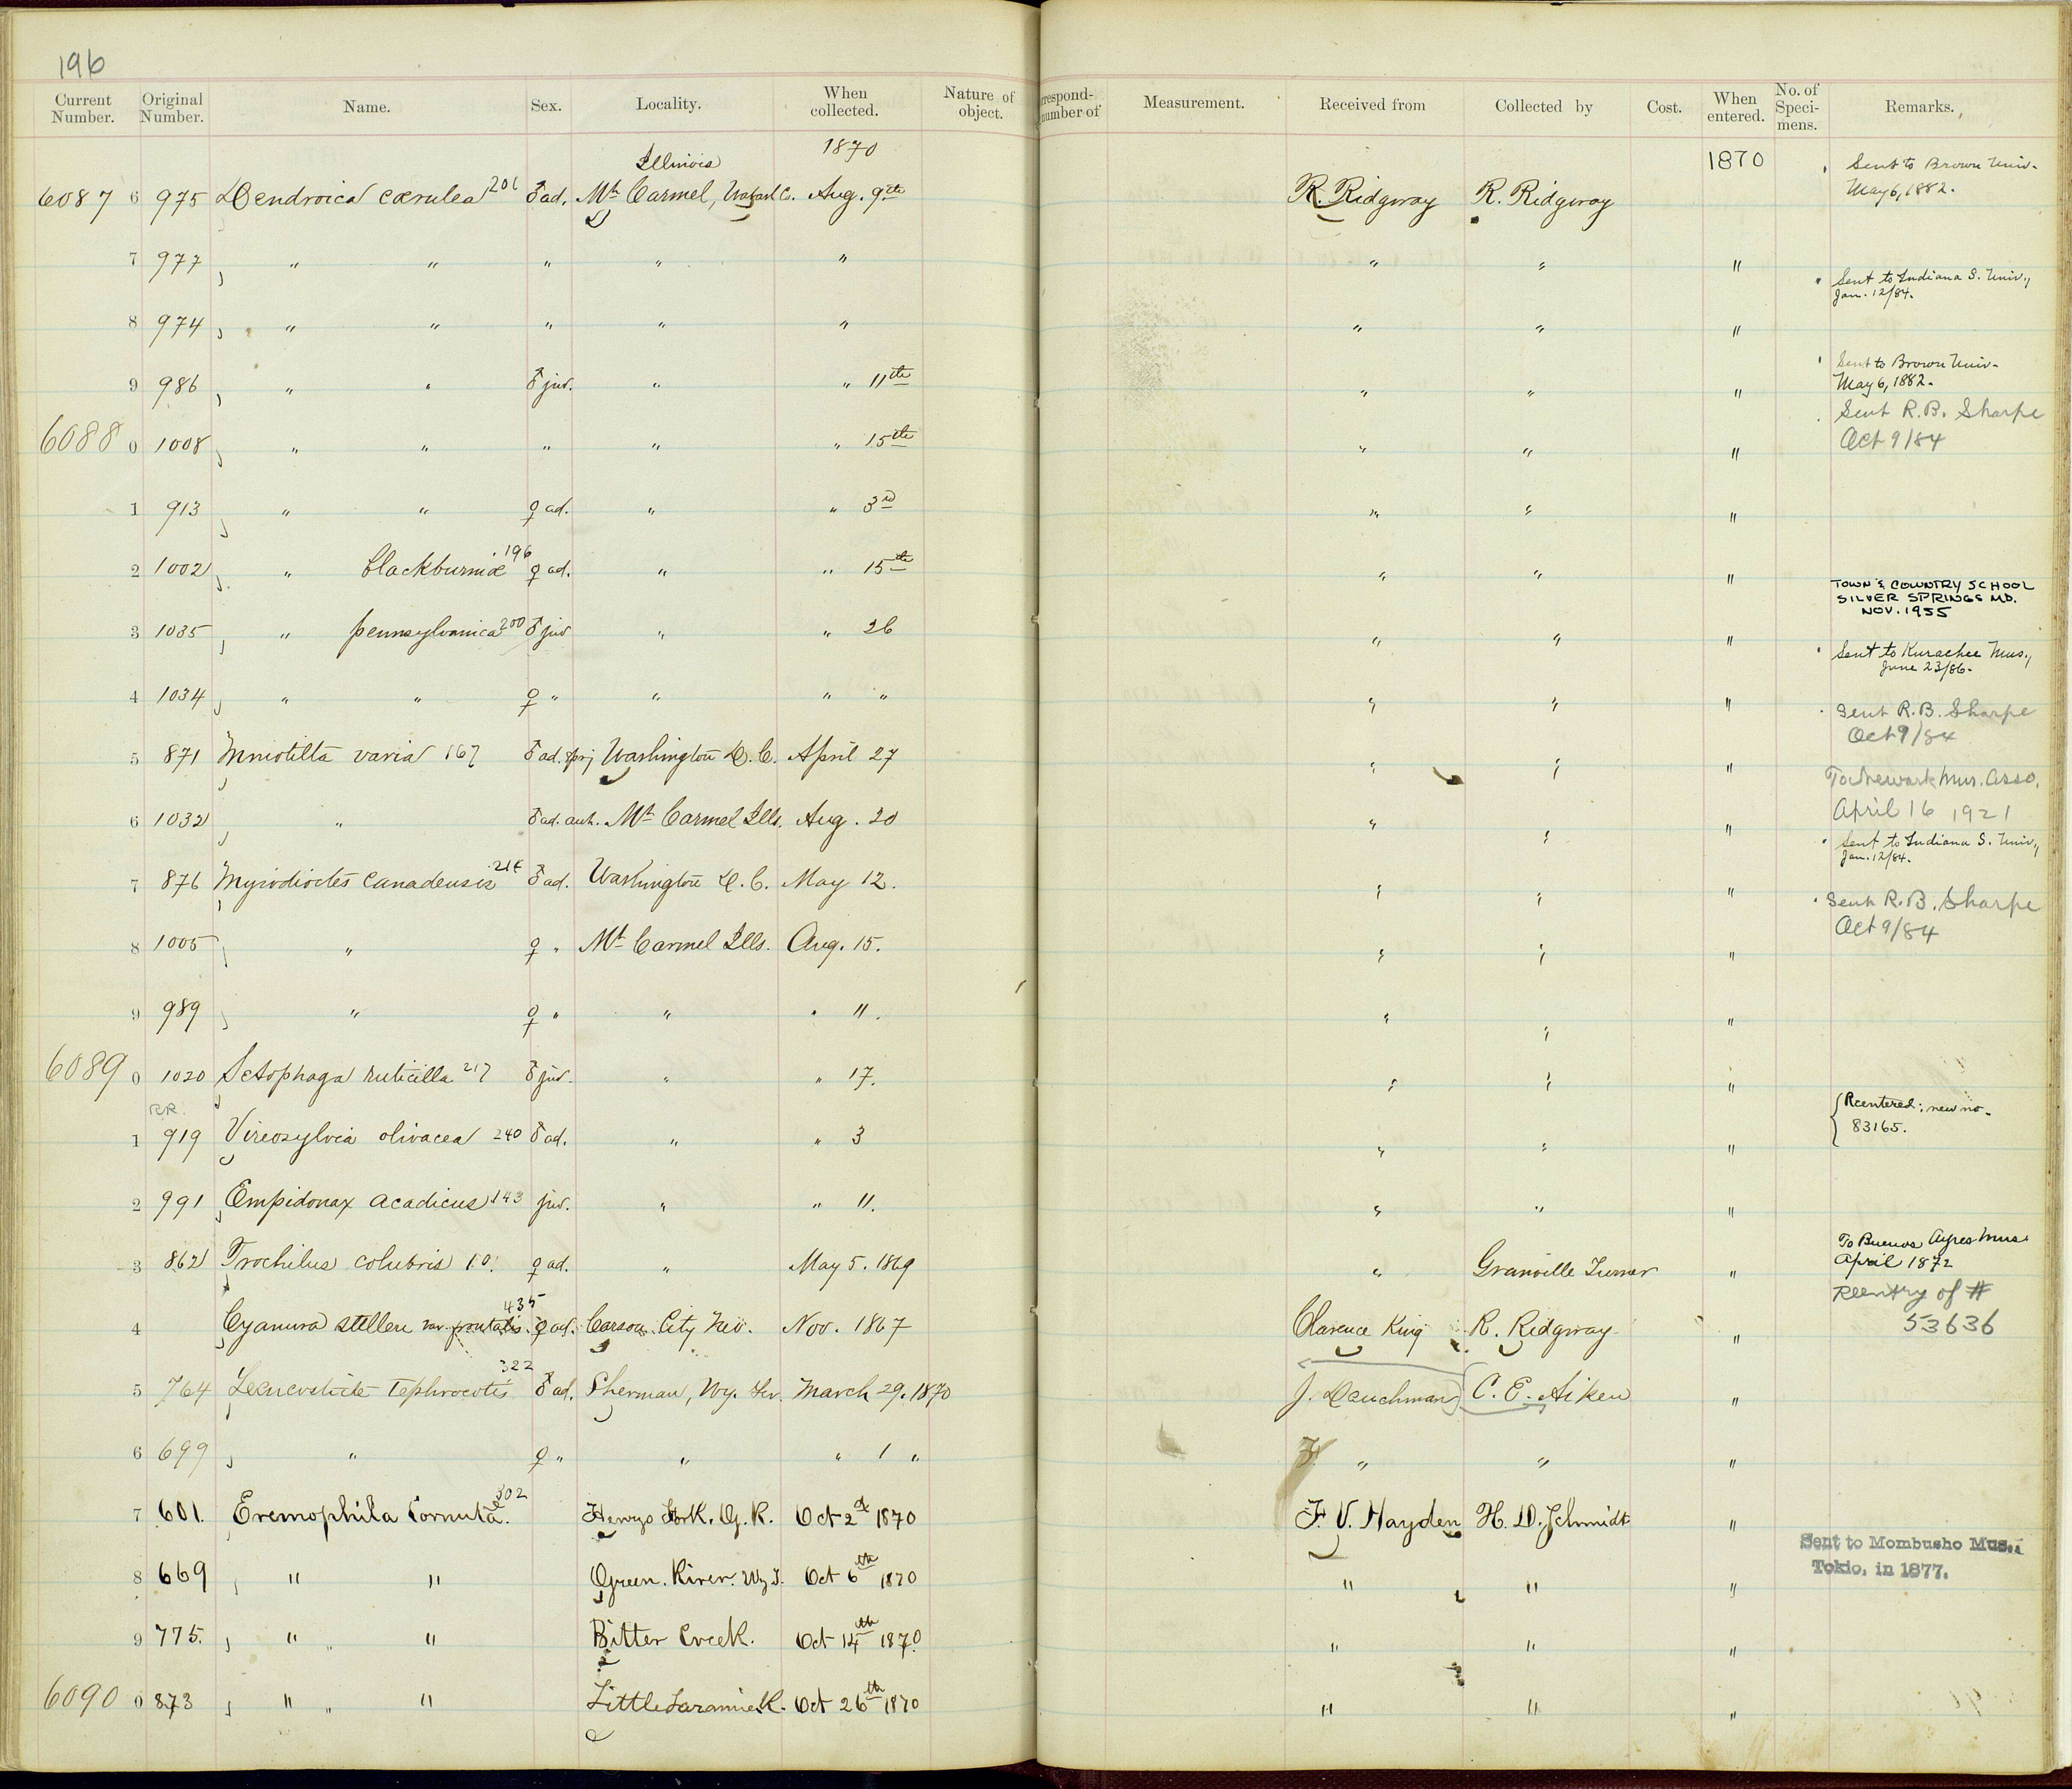 196
Current Number. Original Number. Name. Sex. Locality. When collected. Nature of object. respond- number of Measurement. Received from Collected by Cost. When entered. No. of Speci- mens. Remarks.
Illinois 1870 1870
6087 6 975 Dendroica cærulea 201 ♂ ad. Mt. Carmel, Wabash Co. Aug. 9th R. Ridgway R. Ridgway Sent to Brown Univ. May 6, 1882.
7 977 " " " " " " " "
8 974 " " " " " " " " Sent to Indiana S. Univ., Jan. 12/84.
9 986 " " ♂ juv. " " 11th " " " Sent to Brown Univ. May 6, 1882.
6088 0 1008 " " " " " 15th " " " Sent R. B. Sharpe Oct 9/84
1 913 " " ♀ ad. " " 3rd " " "
2 1002 " blackburniæ 196 ♀ ad. " " 15th " " " TOWN & COUNTRY SCHOOL SILVER SPRINGS MD. NOV. 1955
3 1035 " pennsylvanica 200 ♂ juv " " 26 " " " Sent to Kurachee Mus., June 23/86.
4 1034 " " ♀ " " " " " " " Sent R. B. Sharpe Oct 9/84
5 871 Mniotilta varia 167 ♂ ad. Washington D. C. April 27 " " " To Newark Mus. Asso. April 16 1921
6 1032 " ♂ ad. aut. Mt. Carmel Ills. Aug. 20 " " " Sent to Indiana S. Univ., Jan. 12/84.
7 876 Myiodioctes canadensis ♂ ad. Washington D. C. May 12. " " " Sent R. B. Sharpe Oct 9/84
8 1005 " ♀ " Mt. Carmel Ills. Aug. 15. " " "
9 989 " ♀ " " " 11. " " "
6089 0 1020 Setophaga ruticilla 217 ♂ juv. " " 17. " " "
RR.
1 919 Vireosylvia olivacea 240 ♂ ad. " " 3 " " " Reentered; new no. 83165.
2 991 Empidonax acadicus 143 juv. " " 11. " " "
3 862 Trochilus colubris ♀ ad. " May 5. 1869 " Granville Turner " To Buenos Ayres Mus April 1872
4 Cyanura stelleri var. frontalis. 435 ♀ ad. Carson City Nev. Nov. 1867 Clarence King R. Ridgway " Reentry of # 53636
5 764 Leucosticte tephrocotis 322 ♂ ad. Sherman, Wy. Ter. March 29. 1870 J. C. E. Aiken "
6 699 " ♀ " " " 1 " " " "
7 601. Eremophila cornuta. 302 Henrys Fork. G. R. Oct 2d 1870 F. V. Hayden H. D. Schmidt "
8 669 " " Green. River. Wy T. Oct 6th 1870 " " " Sent to Mombusho Mus., Tokio, in 1877.
9 775. " " Bitter Creek. Oct 14th 1870 " " "
6090 0 873 " " Little Laramie R. Oct 26th 1870 " " "